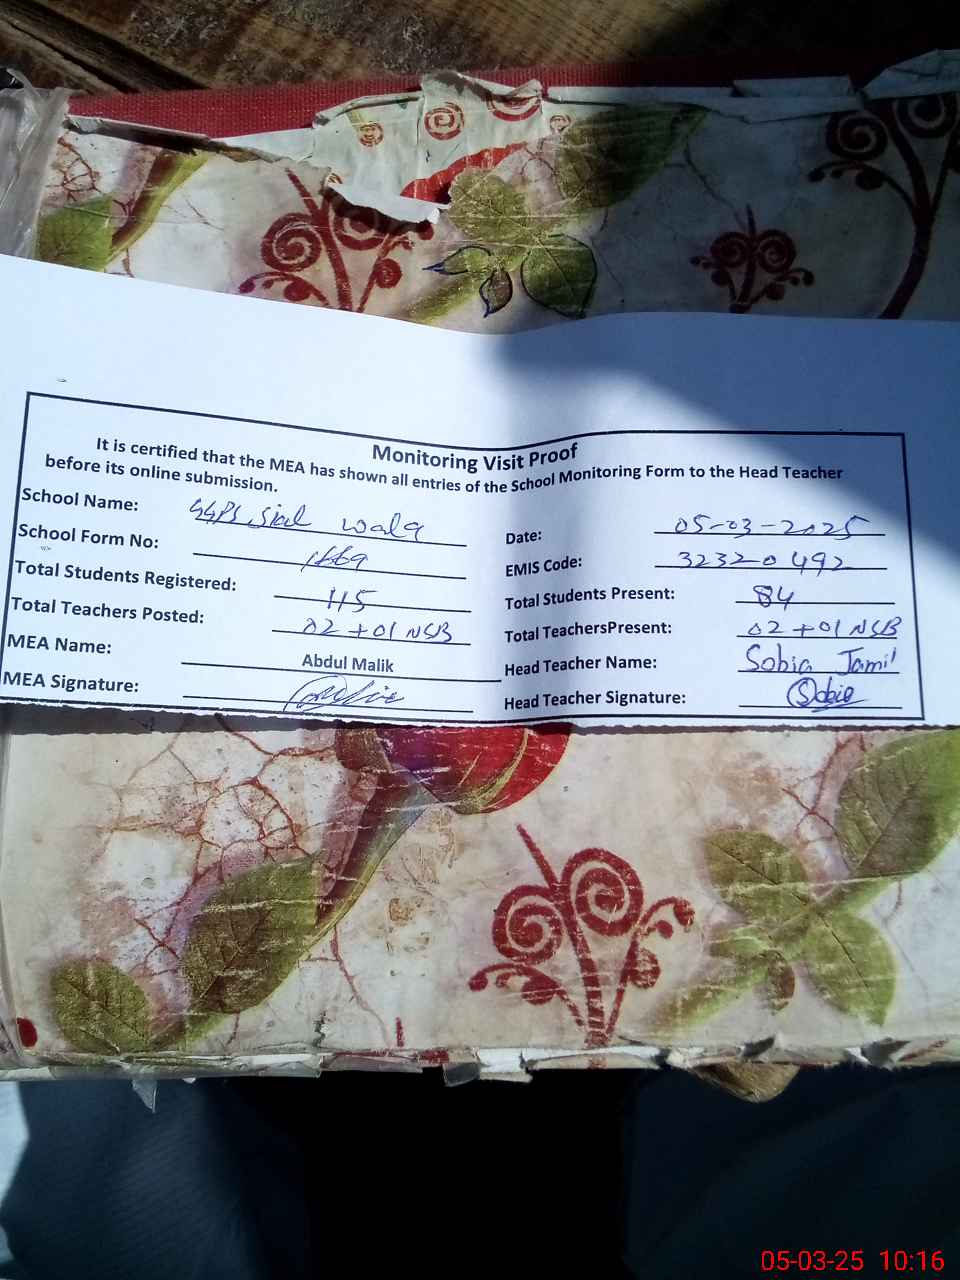 Monitoring Visit Proof
It is certified that the MEA has shown all entries of the School Monitoring Form to the Head Teacher
before its online submission.
School Name: GGPS Sial wala
Date: 05-03-2025
School Form No: 1669
EMIS Code: 32320492
Total Students Registered: 115
Total Students Present: 84
Total Teachers Posted: 02 + 01 NSB
Total TeachersPresent: 02 + 01 NSB
MEA Name: Abdul Malik
Head Teacher Name: Sobia Jamil
MEA Signature:
Head Teacher Signature: Sobia
05-03-25 10:16